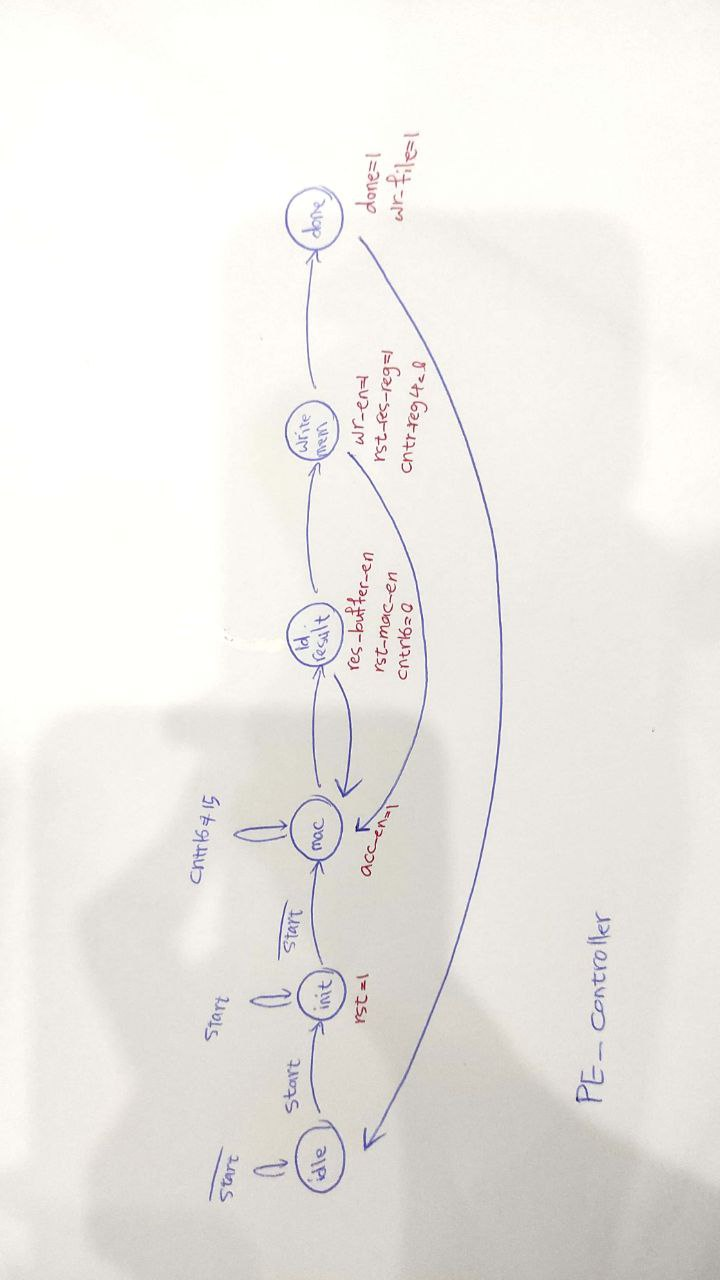 start
idle
start
start
init
rst=1
start
cntr16≠15
mac
acc-en=1
ld
result
res-buffer-en
rst-mac-en
cntr16=0
write
mem
wr-en=1
rst-res-reg=1
done
done=1
wr-file=1
PE-controller